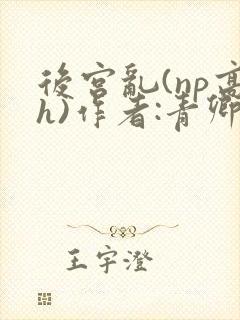 後宮亂(np高
h)作者:青卿
王宇澄